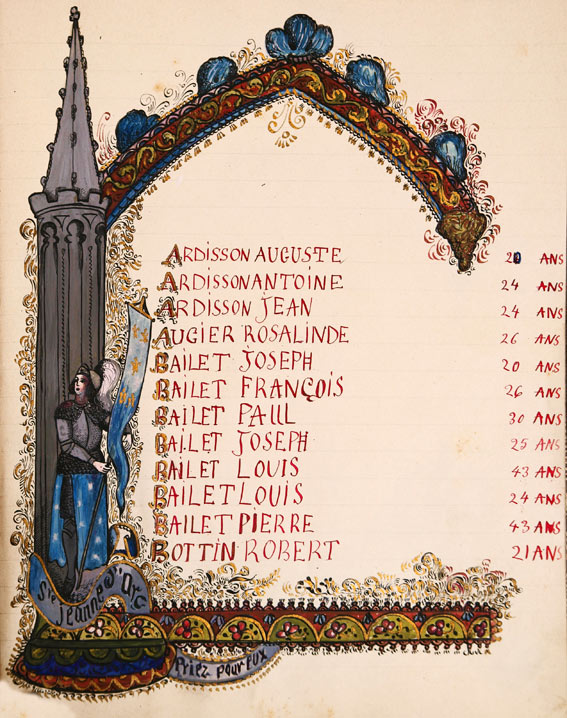 ARDISSON AUGUSTE 20 ANS
ARDISSON ANTOINE 24 ANS
ARDISSON JEAN 24 ANS
AUGIER ROSALINDE 26 ANS
BAILET JOSEPH 20 ANS
BAILET FRANÇOIS 26 ANS
BAILET PAUL 30 ANS
BAILET JOSEPH 25 ANS
BAILET LOUIS 43 ANS
BAILET LOUIS 24 ANS
BAILET PIERRE 43 ANS
BOTTIN ROBERT 21 ANS
Ste Jeanne d'Arc
Priez pour Eux